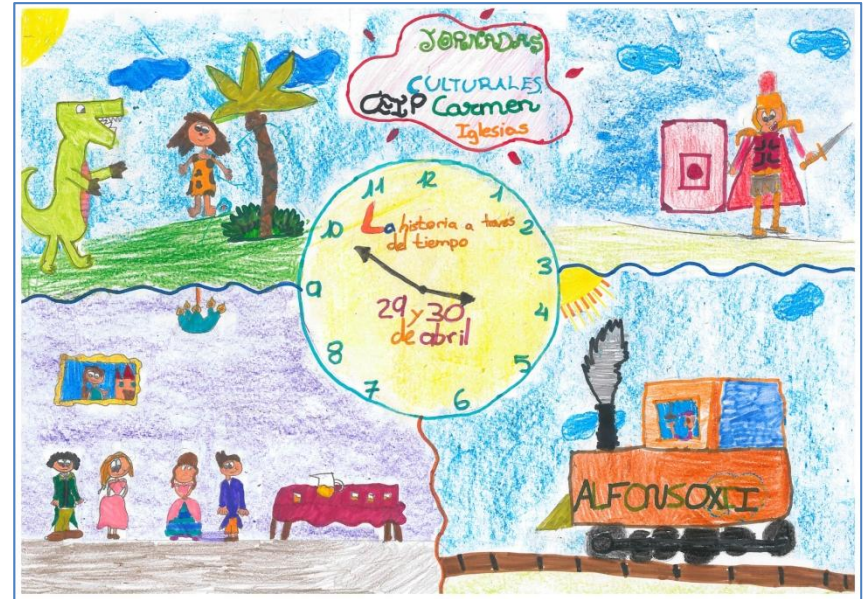 JORNADAS
CULTURALES
CEIP Carmen
Iglesias
11 12 1
10 2
9 3
8 4
7 6 5
La historia a traves
del tiempo
29 y 30
de abril
ALFONSO XII